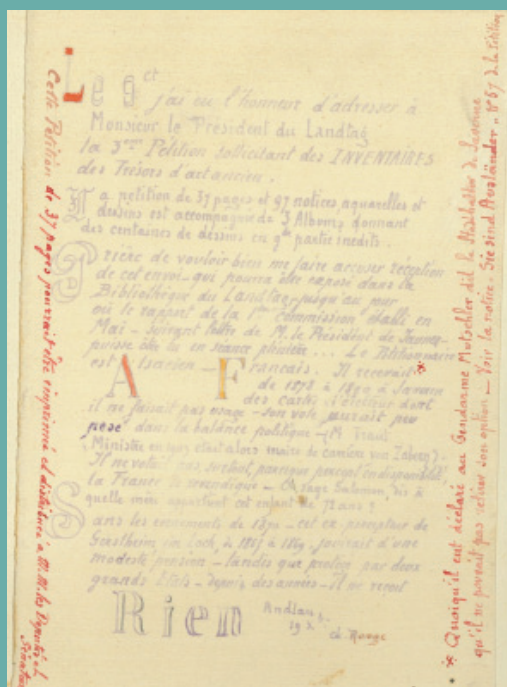 Le 9 ct
j'ai eu l'honneur d'adresser à
Monsieur le Président du Landtag
la 3me Pétition sollicitant des INVENTAIRES
des Trésors d'art ancien.
La petition de 37 pages et 97 notices, aquarelles et
dessins est accompagnée de 3 Albums donnant
des centaines de dessins en gde partie inedits.
Prière de vouloir bien me faire accuser réception
de cet envoi - qui pourra être exposé dans la
Bibliothèque du Landtag jusqu'au jour
où le rapport de la 1ère Commission établi en
Mai - suivant lettre de M. le Président de
puisse être lu en séance plénière ... Le Pétitionnaire
est Alsacien - Français. Il recevait *
de 1873 à 1890 à
des cartes d'électeur dont
il ne faisait pas usage - son vote aurait peu
pesé dans la balance politique - (M.
Ministre en 1909 était alors maire de von Zabern) -
Il ne votait pas, surtout, parce que
la France le revendique - Oh sage Salomon, dis à
quelle mère appartient cet enfant de 72 ans?
Sans les de 1870 - cet ex percepteur de
Gerstheim im Loch, à 1869, jouirait d'une
modeste pension - tandis que protégé par deux
grands Etats - depuis des années - il ne reçoit
Rien
Andlau
19
Ch
Cette Pétition de 37 pages pourrait être imprimée et distribuée à M.M. les Députés et
Sénateurs
* Quoiqu'il eut déclaré au Gendarme Mutschler del la Statthalter de Saverne
qu'il ne pouvait pas retirer son option - Voir la notice - Sie sind Ausländer - N° 57 de la Pétition